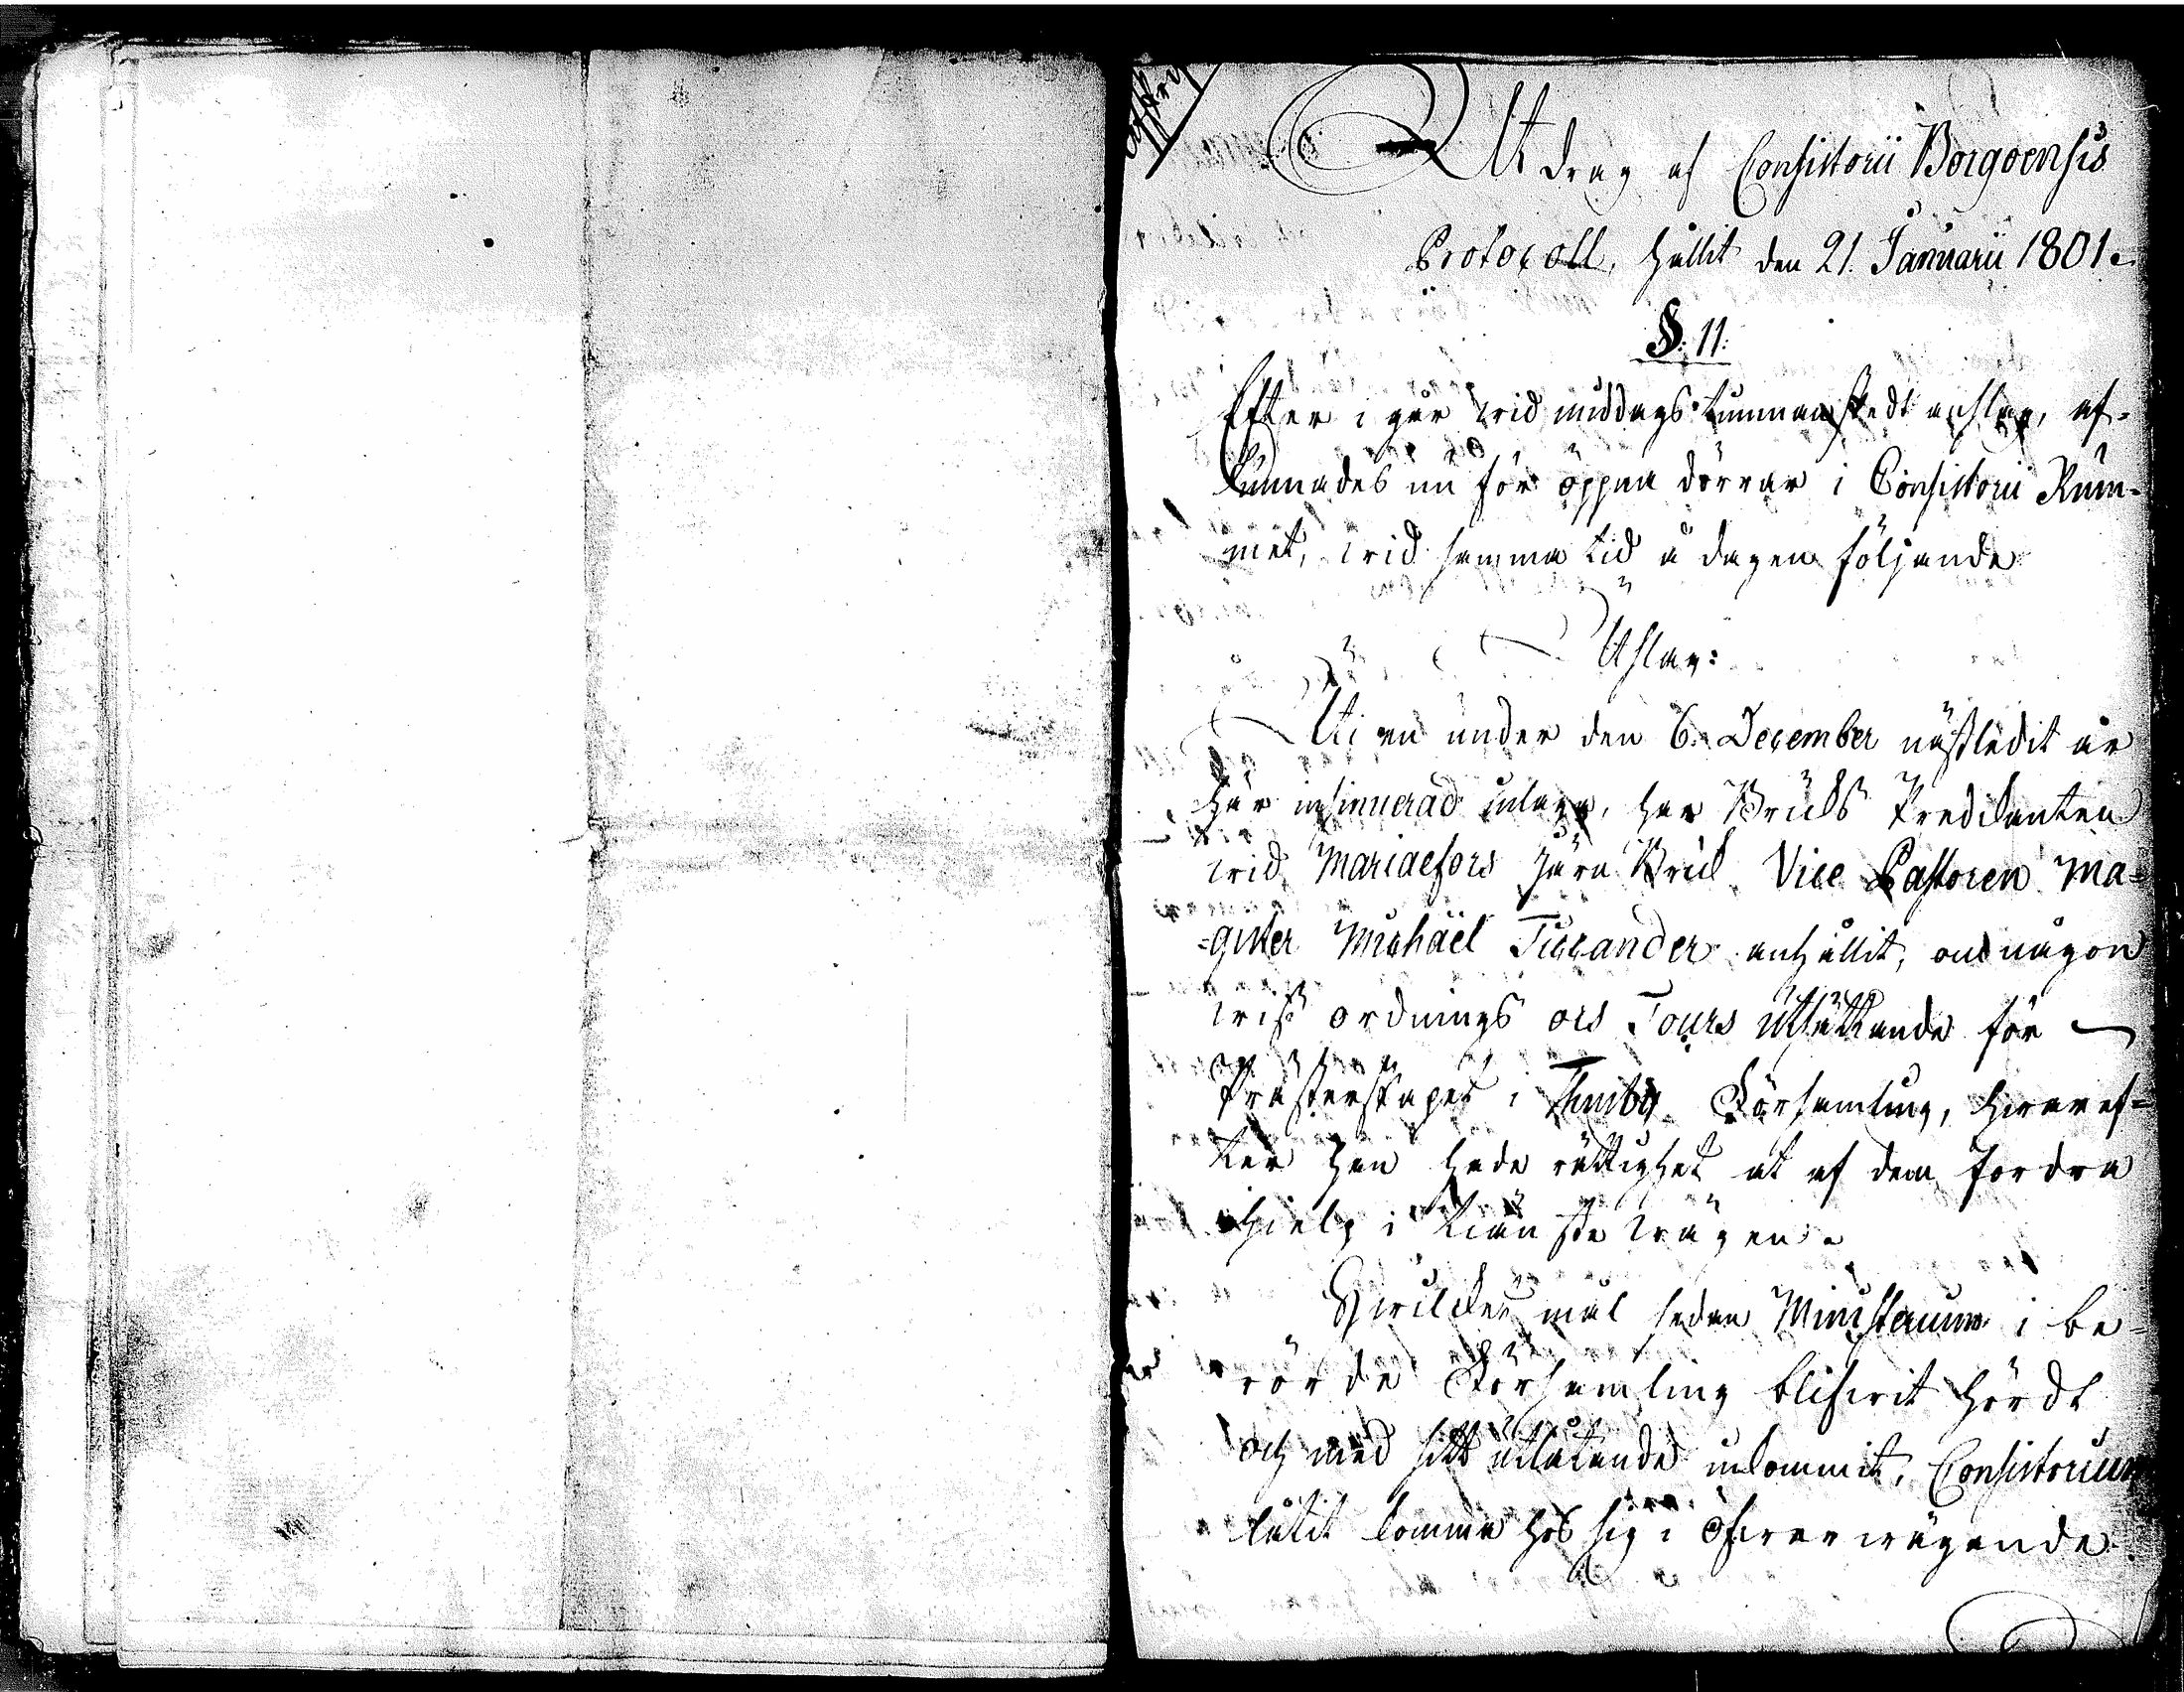 Afskrift
Utdrag af Consistorii Borgoensis
Protocoll, hållit den 21. Januarii 1801.
§. 11.
Efter i går wid middags timman skedt anslag, af-
kunnades nu för öppna dörrar i Consistorii Rum-
met, wid samma tid å dagen följande
Utslag:
Uti en under den 6. December nästledit år
här insinuerad inlaga, har Bruks Predikanten
wid Mariaefors Järn Bruk Vice Pastoren Ma-
=gister Michäel Tuccander anhållit, om någon
wiss ordnings ock Tours utsättande för
Prästerskapet i Församling, hwaref-
ter han hade rättighet at af dem fordra
hjelp i tiänste wägen.
Hwilket mål sedan Ministerium i be-
rörde Församling blifwit hördt
och med sitt utlåtande inkommit, Consistorium
låtit komma hos sig i öfwerwägande.